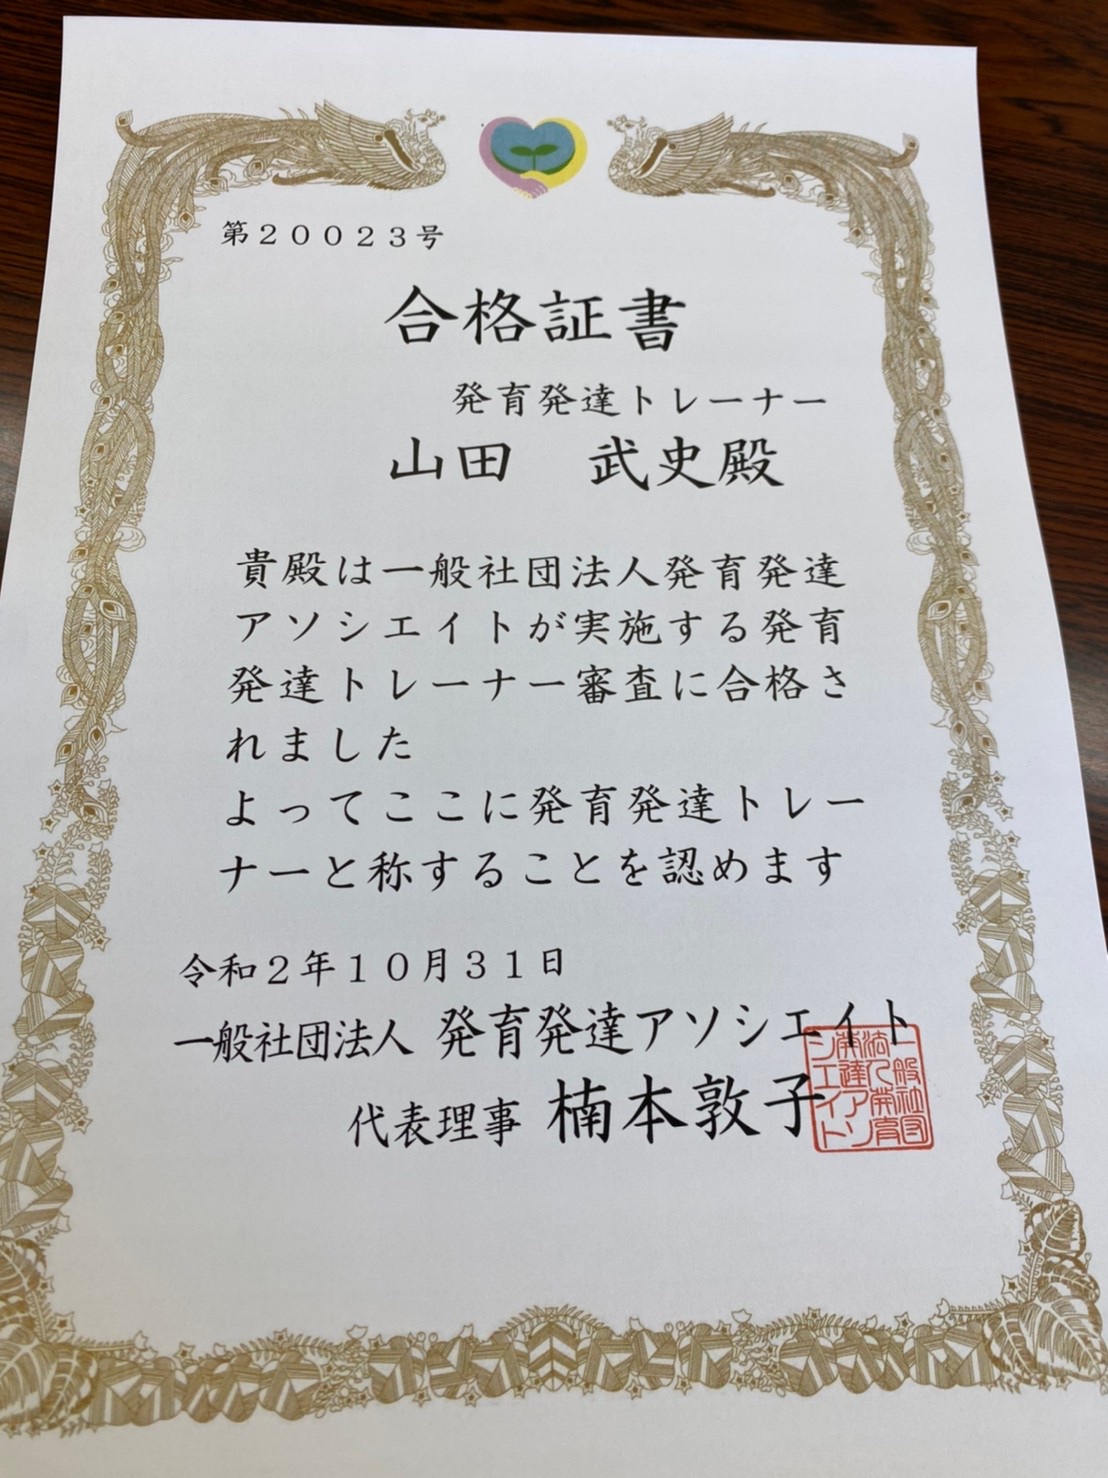 第２００２３号
合格証書
発育発達トレーナー
山田　武史殿
貴殿は一般社団法人発育発達
アソシエイトが実施する発育
発達トレーナー審査に合格さ
れました
よってここに発育発達トレー
ナーと称することを認めます
令和２年１０月３１日
一般社団法人 発育発達アソシエイト
代表理事 楠本敦子